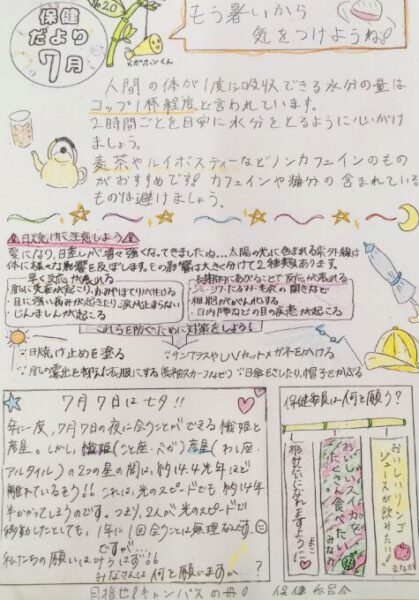 保健
だより
7月
もう暑いから
気をつけようね!
人間の体が1度に吸収できる水分の量は
コップ1杯程度と言われています。
2時間ごとを目安に水分をとるように心がけ
ましょう。
麦茶やルイボスティーなどノンカフェインのもの
がおすすめです!! カフェインや糖分の含まれている
ものは避けましょう。
日焼けに注意しよう
夏になり、日差しが増々強くなってきましたね…太陽の光に含まれる紫外線は
体に様々な影響を及ぼします。その影響は大きく分けて2種類あります。
早く反応が表れる
・目に強い痛みが起きたり、涙が止まらない
・じんましんが起こる
・細胞ががん化する
・白内障などの目の疾患が起こる
これらを防ぐために対策をしよう!
日焼け止めを塗る
サングラスやUVカットメガネをかける
日傘をさしたり、帽子をかぶる
7月7日は七夕!!
年に一度、7月7日の夜に会うことができる織姫と
彦星。しかし織姫(こと座・ベガ)彦星(わし座・
アルタイル)の2つの星の間は、約14.4光年ほど
離れているそう!! これは、光のスピードでも約14年
半かかってしまうのです。つまり、2人が光のスピードで
移動したとしても、1年に1回会うことは無理なんです
ですが…
私たちの願いは叶うはず!!
みなさんは何を願いますか…?
目指せ!キャンパスの舟!
保健委員は何を願う?
おいしいリンゴ
ジュースが飲みたい!
まなか
おいしいスイカを
たくさん食べたい!
みなみ